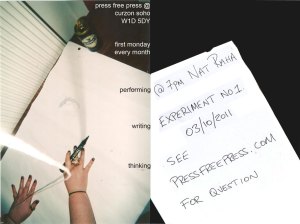 press free press @
curzon soho
W1D 5DY
first monday
every month
performing
writing
thinking
@ 7pm NAT RAHA
EXPERIMENT NO.1
03/10/2011
SEE
PRESSFREEPRESS.COM
FOR QUESTION